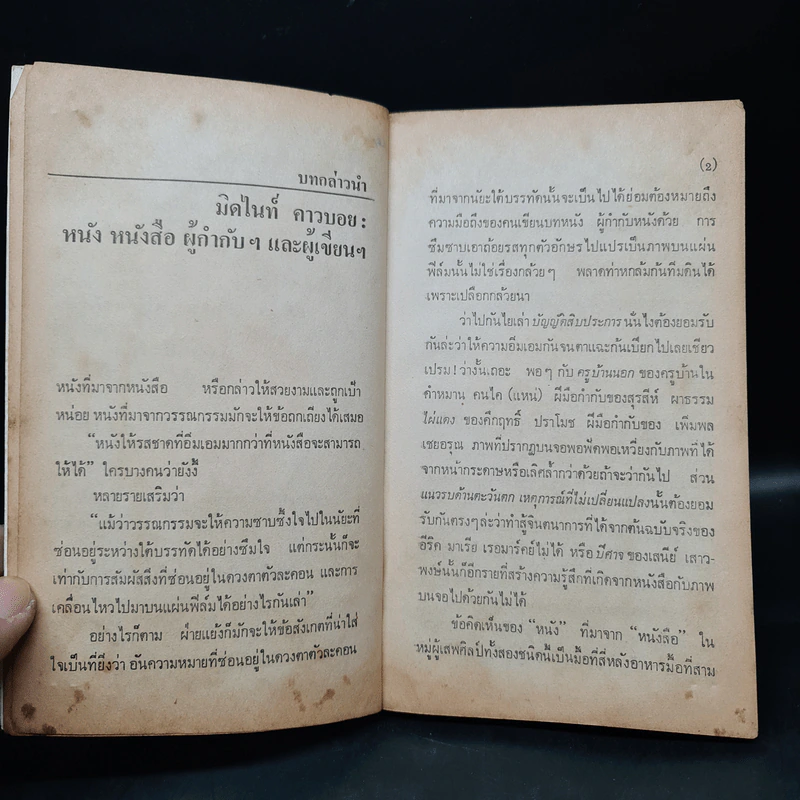 บทกล่าวนำ
มิดไนท์ คาวบอย :
หนัง หนังสือ ผู้กำกับฯ และผู้เขียนฯ
หนังที่มาจากหนังสือ หรือกล่าวให้สวยงามและถูกเป้า
หน่อย หนังที่มาจากวรรณกรรมมักจะให้ข้อถกเถียงได้เสมอ
“หนังให้รสชาดที่อิ่มเอมมากกว่าที่หนังสือจะสามารถ
ให้ได้” ใครบางคนว่ายังงี้
หลายรายเสริมว่า
“แม้ว่าวรรณกรรมจะให้ความซาบซึ้งใจไปในนัยะที่
ซ่อนอยู่ระหว่างใต้บรรทัดได้อย่างซึมใจ แต่กระนั้นก็จะ
เท่ากับการสัมผัสสิ่งที่ซ่อนอยู่ในดวงตาตัวละคอน และการ
เคลื่อนไหวไปมาบนแผ่นฟิล์มได้อย่างไรกันเล่า”
อย่างไรก็ตาม ฝ่ายแย้งก็มักจะให้ข้อสังเกตที่น่าใส่
ใจเป็นที่ยิ่งว่า อันความหมายที่ซ่อนอยู่ในดวงตาตัวละคอน
(2)
ที่มาจากนัยะใต้บรรทัดนั้นจะเป็นไปได้ย่อมต้องหมายถึง
ความมือถึงของคนเขียนบทหนัง ผู้กำกับหนังด้วย การ
ซึมซาบเอาถ้อยรสทุกตัวอักษรไปแปรเป็นภาพบนแผ่น
ฟิล์มนั้นไม่ใช่เรื่องกล้วยๆ พลาดท่าหกล้มก้นทิ่มดินได้
เพราะเปลือกกล้วยนา
ว่าไปกันไยเล่า บัญญัติสิบประการ นั่นไงต้องยอมรับ
กันล่ะว่าให้ความอิ่มเอมกันจนตาแฉะก้นเปียกไปเลยเชียว
เปรม! ว่างั้นเถอะ พอๆ กับ ครูบ้านนอก ของครูบ้านใน
คำหมาน คนไค (แหน่) ฝีมือกำกับของสุรสีห์ ผาธรรม
ไผ่แดง ของคึกฤทธิ์ ปราโมช ฝีมือกำกับของ เพิ่มพล
เชยอรุณ ภาพที่ปรากฏบนจอพอฟัดพอเหวี่ยงกับภาพที่ได้
จากหน้ากระดาษหรือเลิศล้ำกว่าด้วยถ้าจะว่ากันไป ส่วน
แนวรบด้านตะวันตก เหตุการณ์ที่ไม่เปลี่ยนแปลงนั้นต้องยอม
รับกันตรงๆ ล่ะว่าทำสู้จินตนาการที่ได้จากต้นฉบับจริงของ
อีริค มาเรีย เรอมาร์คย์ไม่ได้ หรือ ปีศาจ ของเสนีย์ เสาว-
พงษ์นั้นก็อีกรายที่สร้างความรู้สึกที่เกิดจากหนังสือกับภาพ
บนจอไปด้วยกันไม่ได้
ข้อคิดเห็นของ “หนัง” ที่มาจาก “หนังสือ” ใน
หมู่ผู้เสพศิลป์ทั้งสองชนิดนี้เป็นมื้อที่สี่หลังอาหารมื้อที่สาม